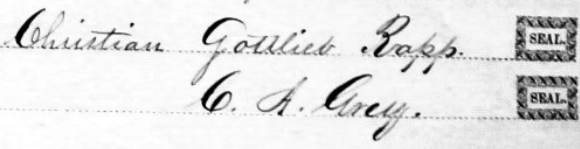 Christian Gottlieb Rapp. SEAL.
C. A. Grey. SEAL.